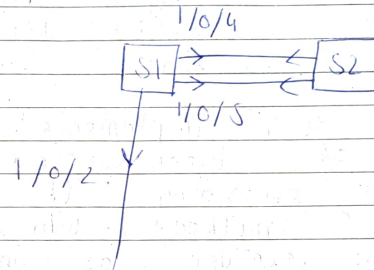 1/0/4
S1
S2
1/0/5
1/0/2